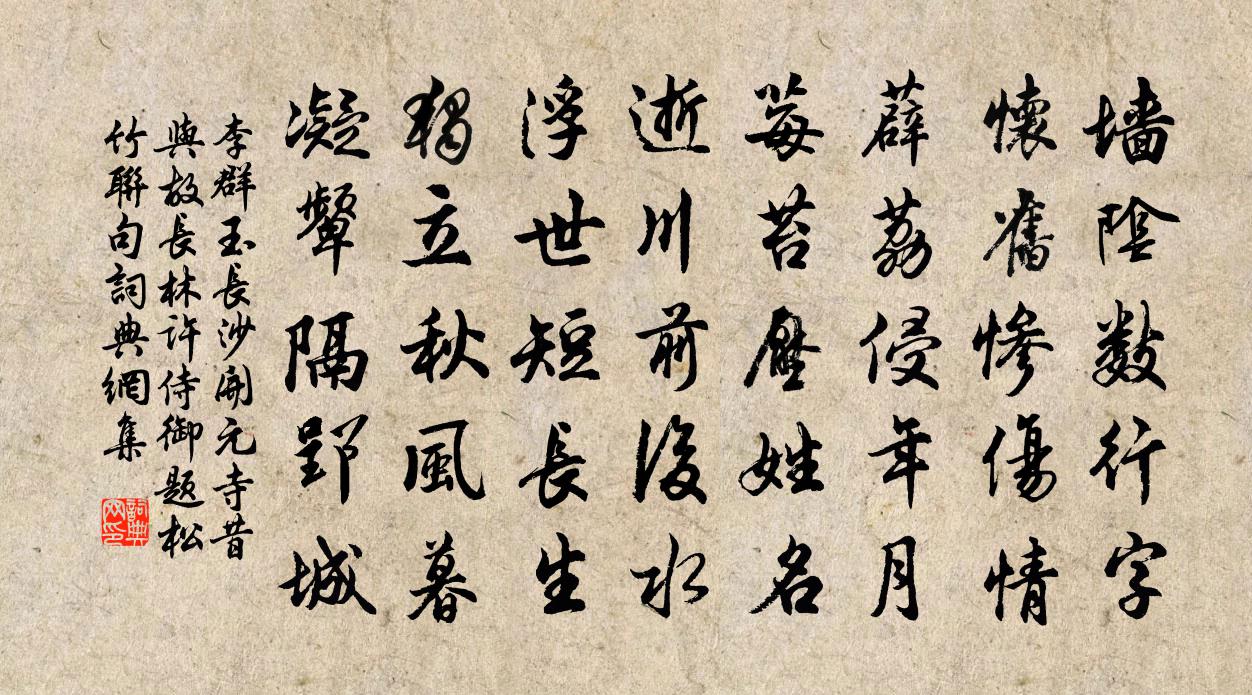 墻陰數行字
懷舊慘傷情
薜荔侵年月
莓苔壓姓名
逝川前後水
浮世短長生
獨立秋風暮
凝顰隔郢城
李群玉長沙開元寺昔
與故長林許侍御題松
竹聯句詞典網集
詞典
网印